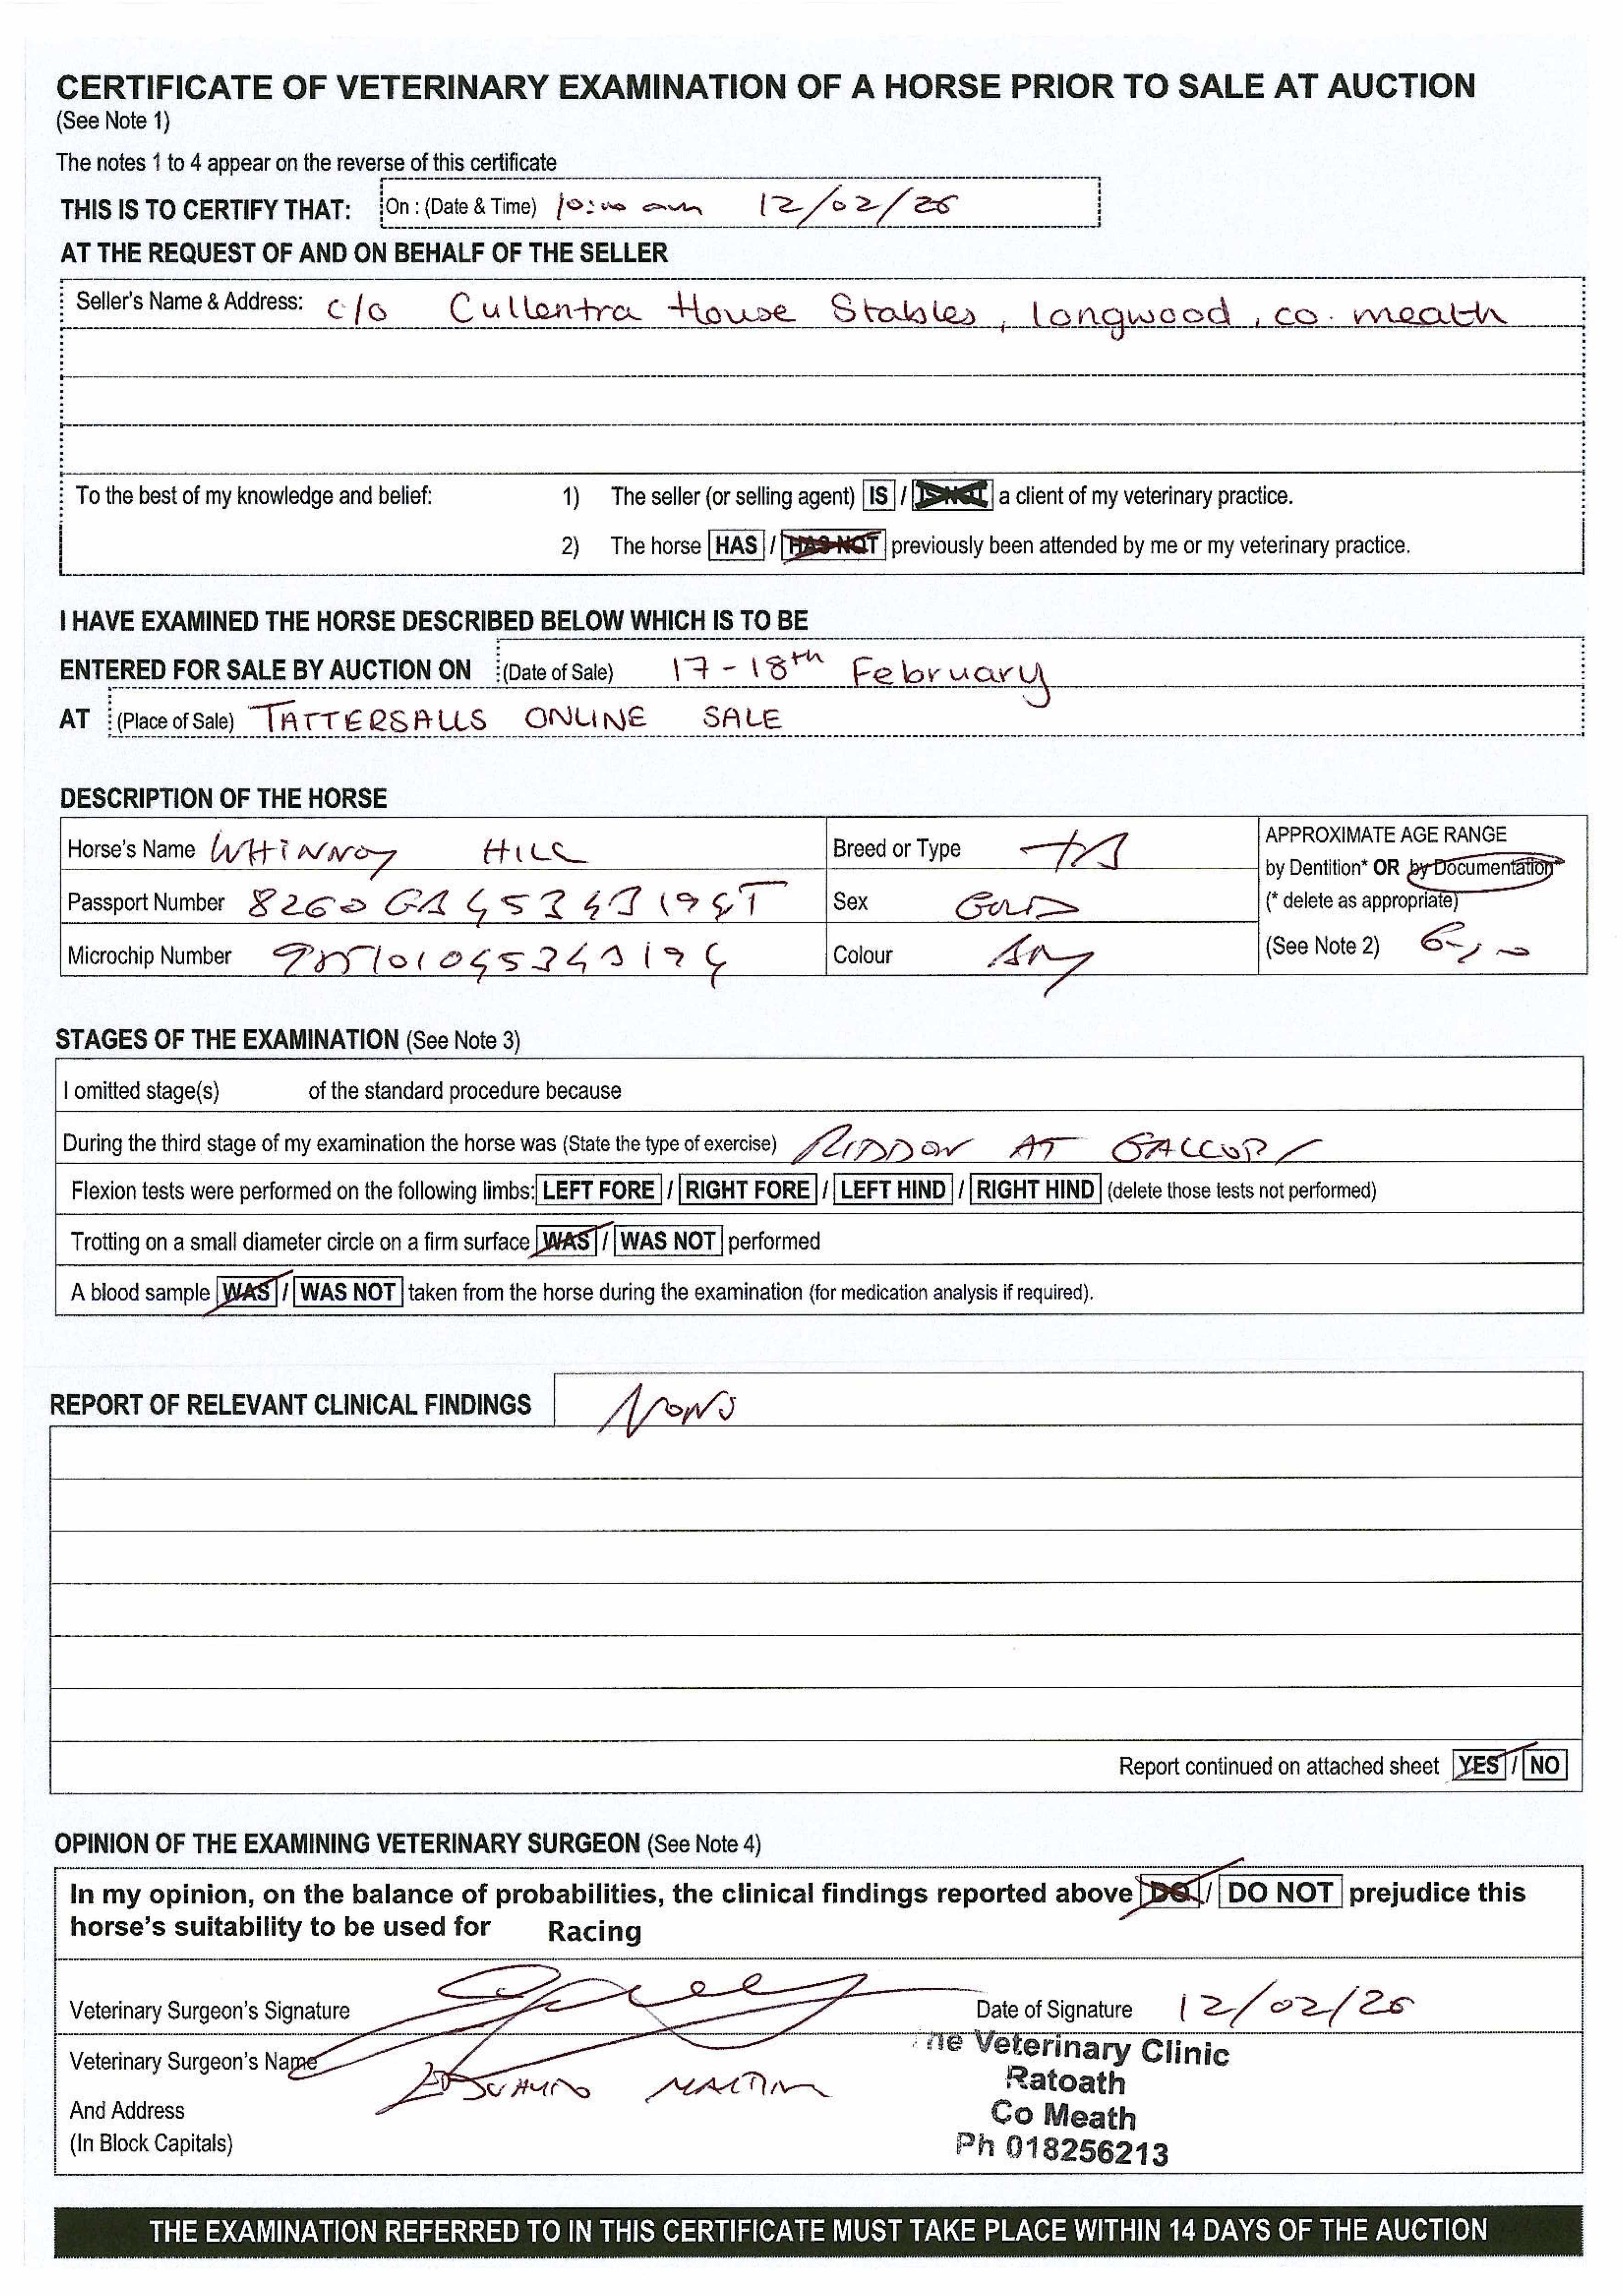 CERTIFICATE OF VETERINARY EXAMINATION OF A HORSE PRIOR TO SALE AT AUCTION
(See Note 1)
The notes 1 to 4 appear on the reverse of this certificate
THIS IS TO CERTIFY THAT: On : (Date & Time) 10:00 am 12/02/26
AT THE REQUEST OF AND ON BEHALF OF THE SELLER
Seller's Name & Address: c/o Cullentra House Stables, Longwood, co. meath
To the best of my knowledge and belief: 1) The seller (or selling agent) IS / IS NOT a client of my veterinary practice.
2) The horse HAS / HAS NOT previously been attended by me or my veterinary practice.
I HAVE EXAMINED THE HORSE DESCRIBED BELOW WHICH IS TO BE
ENTERED FOR SALE BY AUCTION ON (Date of Sale) 17-18th February
AT (Place of Sale) TATTERSALLS ONLINE SALE
DESCRIPTION OF THE HORSE
Horse's Name WHINNEY HILL Breed or Type TB APPROXIMATE AGE RANGE
by Dentition* OR by Documentation*
Passport Number Sex (* delete as appropriate)
Microchip Number Colour Bay (See Note 2)
STAGES OF THE EXAMINATION (See Note 3)
I omitted stage(s) of the standard procedure because
During the third stage of my examination the horse was (State the type of exercise) RIDDEN AT GALLOP
Flexion tests were performed on the following limbs: LEFT FORE / RIGHT FORE / LEFT HIND / RIGHT HIND (delete those tests not performed)
Trotting on a small diameter circle on a firm surface WAS / WAS NOT performed
A blood sample WAS / WAS NOT taken from the horse during the examination (for medication analysis if required).
REPORT OF RELEVANT CLINICAL FINDINGS NONE
Report continued on attached sheet YES / NO
OPINION OF THE EXAMINING VETERINARY SURGEON (See Note 4)
In my opinion, on the balance of probabilities, the clinical findings reported above DO / DO NOT prejudice this
horse's suitability to be used for Racing
Veterinary Surgeon's Signature Date of Signature 12/02/26
he Veterinary Clinic
Veterinary Surgeon's Name
Ratoath
And Address Co Meath
(In Block Capitals) Ph 018256213
THE EXAMINATION REFERRED TO IN THIS CERTIFICATE MUST TAKE PLACE WITHIN 14 DAYS OF THE AUCTION